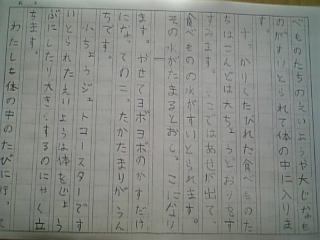 べものたちのえいようや大じなも
のがすいとられて体の中に入りま
す。
すっかりくたびれた食べものた
ちはこんどは大ちょうどおりをす
すみます。ここではあさが出て、
食べものの水がすいとられます。
その水がたまるとおしっこになり
ます。やせてヨボヨボのかすだけ
になってのこったかたまりがうん
ちです。
小ちょうジェットコースターです
いとられたえいようは体をじょう
ぶにしたり大きくするのにやく立
ちます。
わたしも体の中のたびに行って